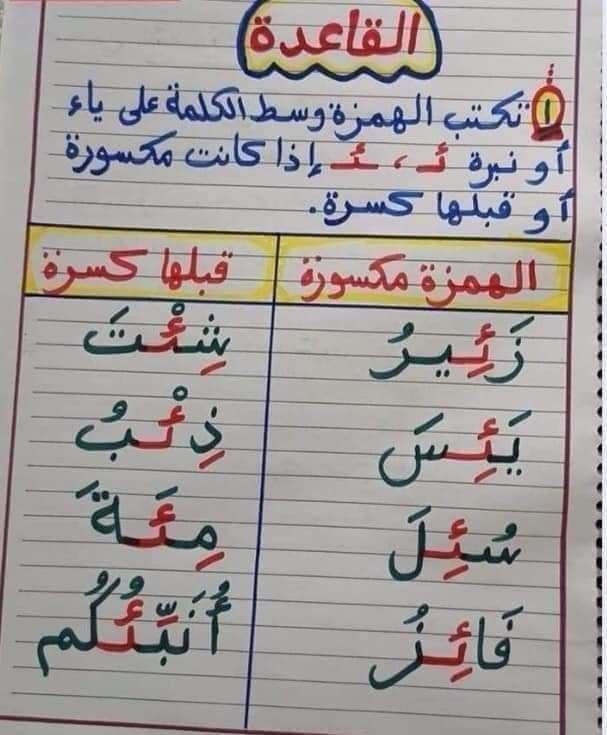 القاعدة
١ تكتب الهمزة وسط الكلمة على ياء
أو نبرة ئـ ، ـئـ إذا كانت مكسورة
أو قبلها كسرة.
الهمزة مكسورة قبلها كسرة
زَئِيرُ شِئْتَ
يَئِسَ ذِئْبُ
سُئِلَ مِئَةَ
فَائِزُ أُنَبِّئُكُم